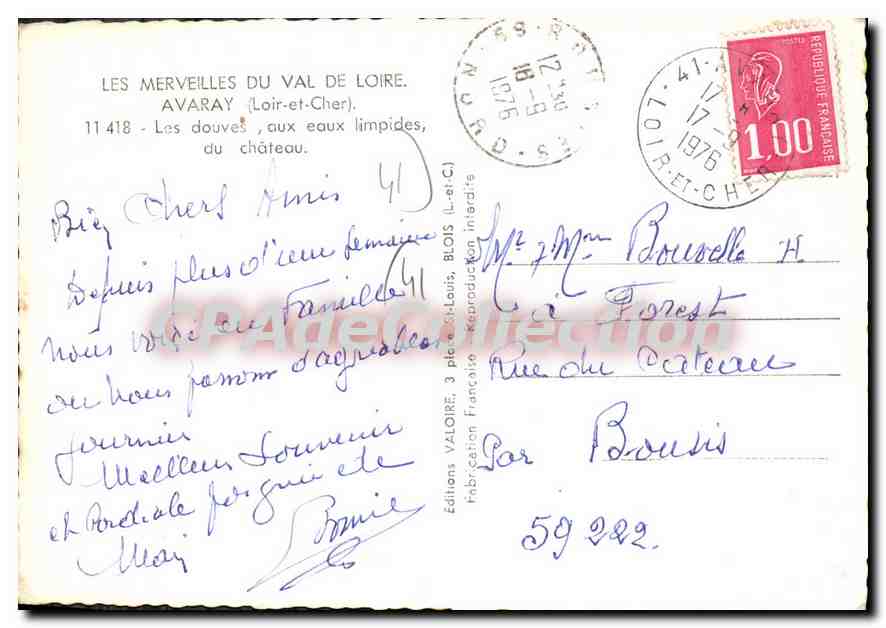 LES MERVEILLES DU VAL DE LOIRE.
AVARAY (Loir-et-Cher).
11 418 - Les douves, aux eaux limpides,
du château.
Bien Chers Amis
Depuis plus d'une semaine
nous voici en Famille
ou nous passons d'agreables
journeir
Meilleur Souvenir
et Cordiale
41
41
Editions VALOIRE, 3 place St-Louis, BLOIS (L.-et-C.)
Fabrication Française - Reproduction interdite
12 H 30
18 - 9
1976
NORD
41-AV
17
17 - 9
1976
LOIR-ET-CHER
POSTES
REPUBLIQUE FRANÇAISE
1,00
Mr & Mme Bouvelle H.
à Forest
Rue du Cateau
Par Bousis
59222.
CPAdeCollection